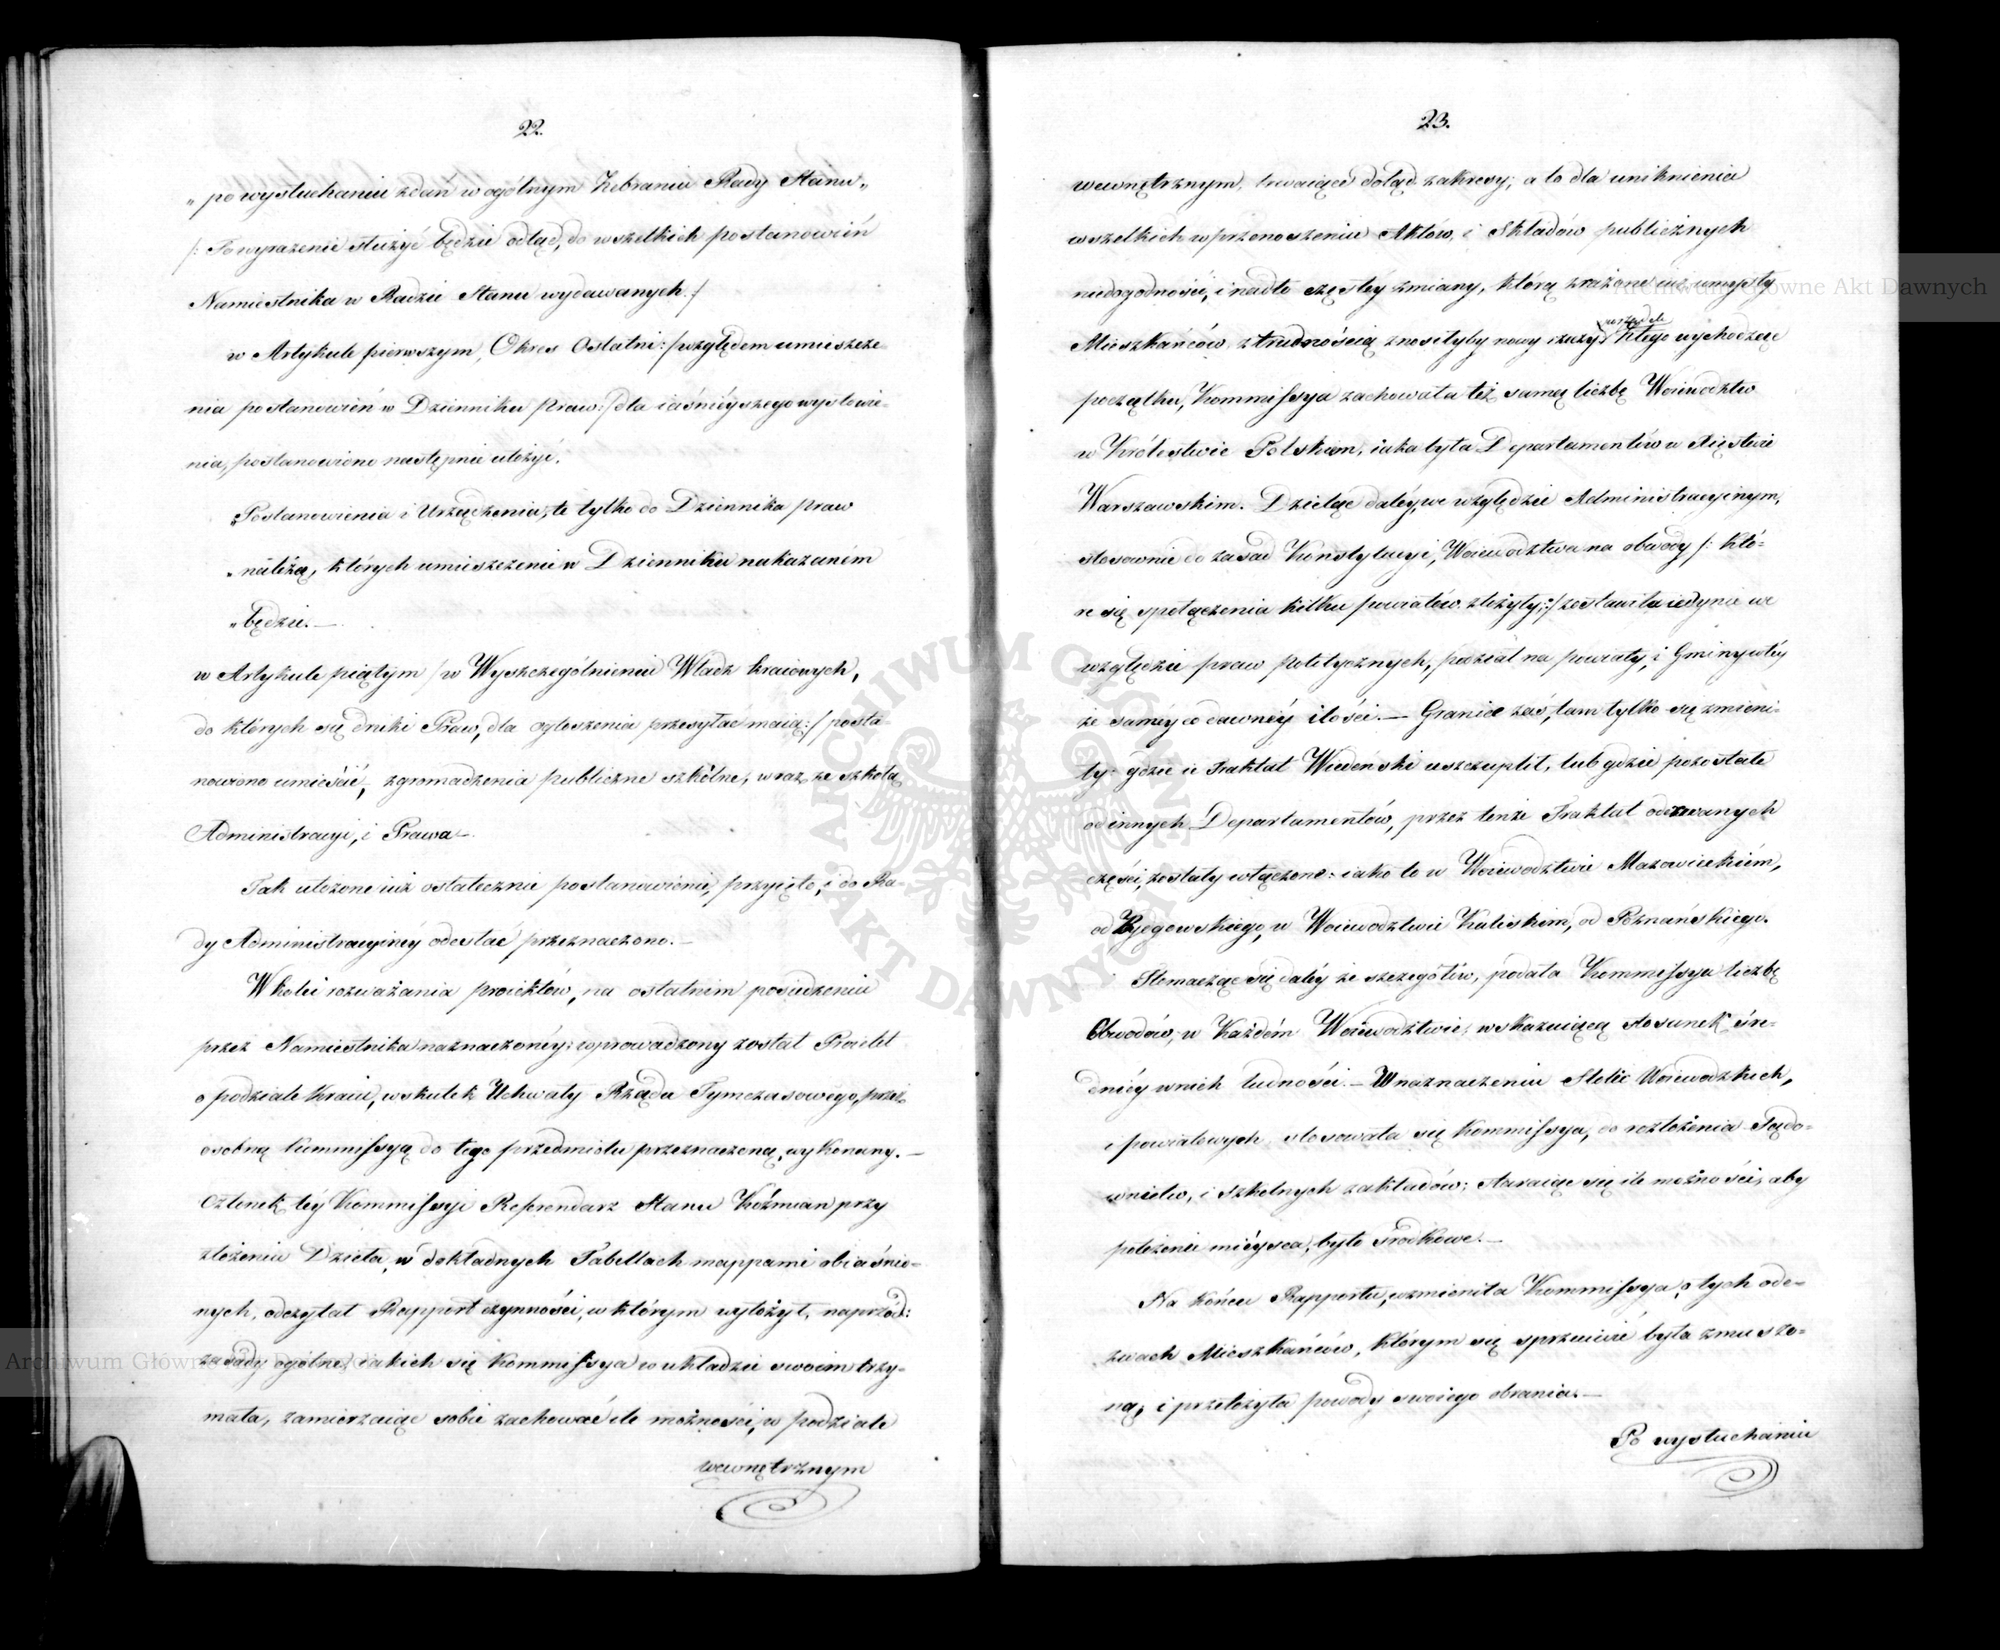 22.
„po wysłuchaniu zdań w ogólnym Zebraniu Rady Stanu„
/: To wyrażenie służyć będzie odtąd, do wszelkich postanowień
Namiestnika w Radzie Stanu wydawanych./
w Artykule pierwszym, Okres Ostatni :/ względem umieszcze-
nia postanowień w Dzienniku Praw :/ dla iaśniéyszego wysłowie-
nia, postanowiono następnie ułożyć.
„Postanowienia i Urządzenia, te tylko do Dziennika praw
„należą, których umieszczenie w Dzienniku nakazaném
„będzie.—
w Artykule piątym / w Wyszczególnieniu Władz kraiowych,
do których się druki Praw, dla ogłoszenia przesyłać maią :/ posta-
nowiono umieścić, zgromadzenia publiczne szkólne, wraz ze szkołą
Administracyi, i Prawa.—
Tak ułożone iuż ostatecznie postanowienie, przyięto, i do Ra-
dy Administracyinéy odesłać przeznaczono.—
W kolei rozważania proiektów, na ostatnim posiedzeniu
przez Namiestnika naznaczonéy; wprowadzony został Proiekt
o podziale Kraiu, w skutek Uchwały Rządu Tymczasowego, przez
osobną Kommissyą do tego przedmiotu przeznaczoną, wykonany.—
Członek téy Kommissyi Referendarz Stanu Koźmian przy
złożeniu Dzieła, w dokładnych Tabellach mappami obiaśnio-
nych, odczytał Rapport czynności, w którym wyłożył, naprzód:
zasady ogólne, iakich się Kommissya w układzie swoim trzy-
mała, zamierzaiąc sobie zachować ile możności, w podziale
wewnętrznym
23.
wewnętrznym, trwaiące dotąd zakresy; a to dla uniknienia
wszelkich w przenoszeniu Aktów, i Składów publicznych
niedogodności, i nadto częstéy zmiany, którą zrażone iuż umysły
Mieszkańców, z trudnością znosiłyby nowy rzeczy porządek z tego wychodząc
początku, Kommissya zachowała też samą liczbę Woiewództw
w Królestwie Polskiem, iaka była Departamentów w Xięstwie
Warszawskim. Dzieląc daléy, we względzie Administracyinym,
stosownie do zasad Konstytucyi, Woiewództwa na obwody /: któ-
re się z połączenia kilku powiatów złożyły, :/ zostawiła iedynie we
względzie praw politycznych, podział na powiaty, i Gminy w téy
że saméy co dawnéy ilości.— Granice zaś, tam tylko się zmieni-
ły: gdzie ie Traktat Wiedeński uszczuplił, lub gdzie pozostałe
od innych Departamentów, przez tenże Traktat oderwanych
części, zostały włączone: iako to w Woiewództwie Mazowieckiém,
od Bydgowskiego, w Woiewództwie Kaliskim, od Poznańskiego.
Tłomacząc się daléy ze szczegółów, podała Kommissya liczbę
Obwodów, w Każdém Woiewództwie, wskazuiącą stosunek śre-
dniéy w nich ludności.— W naznaczeniu Stolic Woiewódzkich,
i powiatowych stosowała się Kommissya, do rozłożenia Sądo-
wnictw, i szkolnych zakładów; staraiąc się ile możności, aby
położenie miéysca, było środkowe.—
Na końcu Rapportu, wzmieniła Kommissya, o tych ode-
zwach Mieszkańców, którym się sprzeciwić była zmuszo-
ną, i przełożyła powody swoiego obrania.—
Po wysłuchaniu